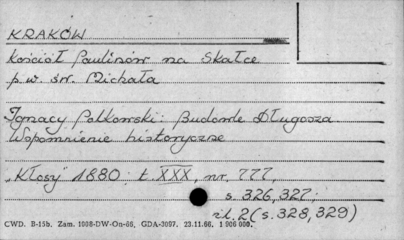 KRAKÓW
Kościół Paulinów na Skałce
p.w. św. Michała
Ignacy Polkowski: Budowle Długosza.
Wspomnienie historyczne
„Kłosy" 1880, t. XXX, nr. 777,
s. 326, 327;
il. 2 (s. 328, 329)
CWD. B-15b. Zam. 1008-DW-On-66. GDA-3097. 23.11.66. 1 906 000.